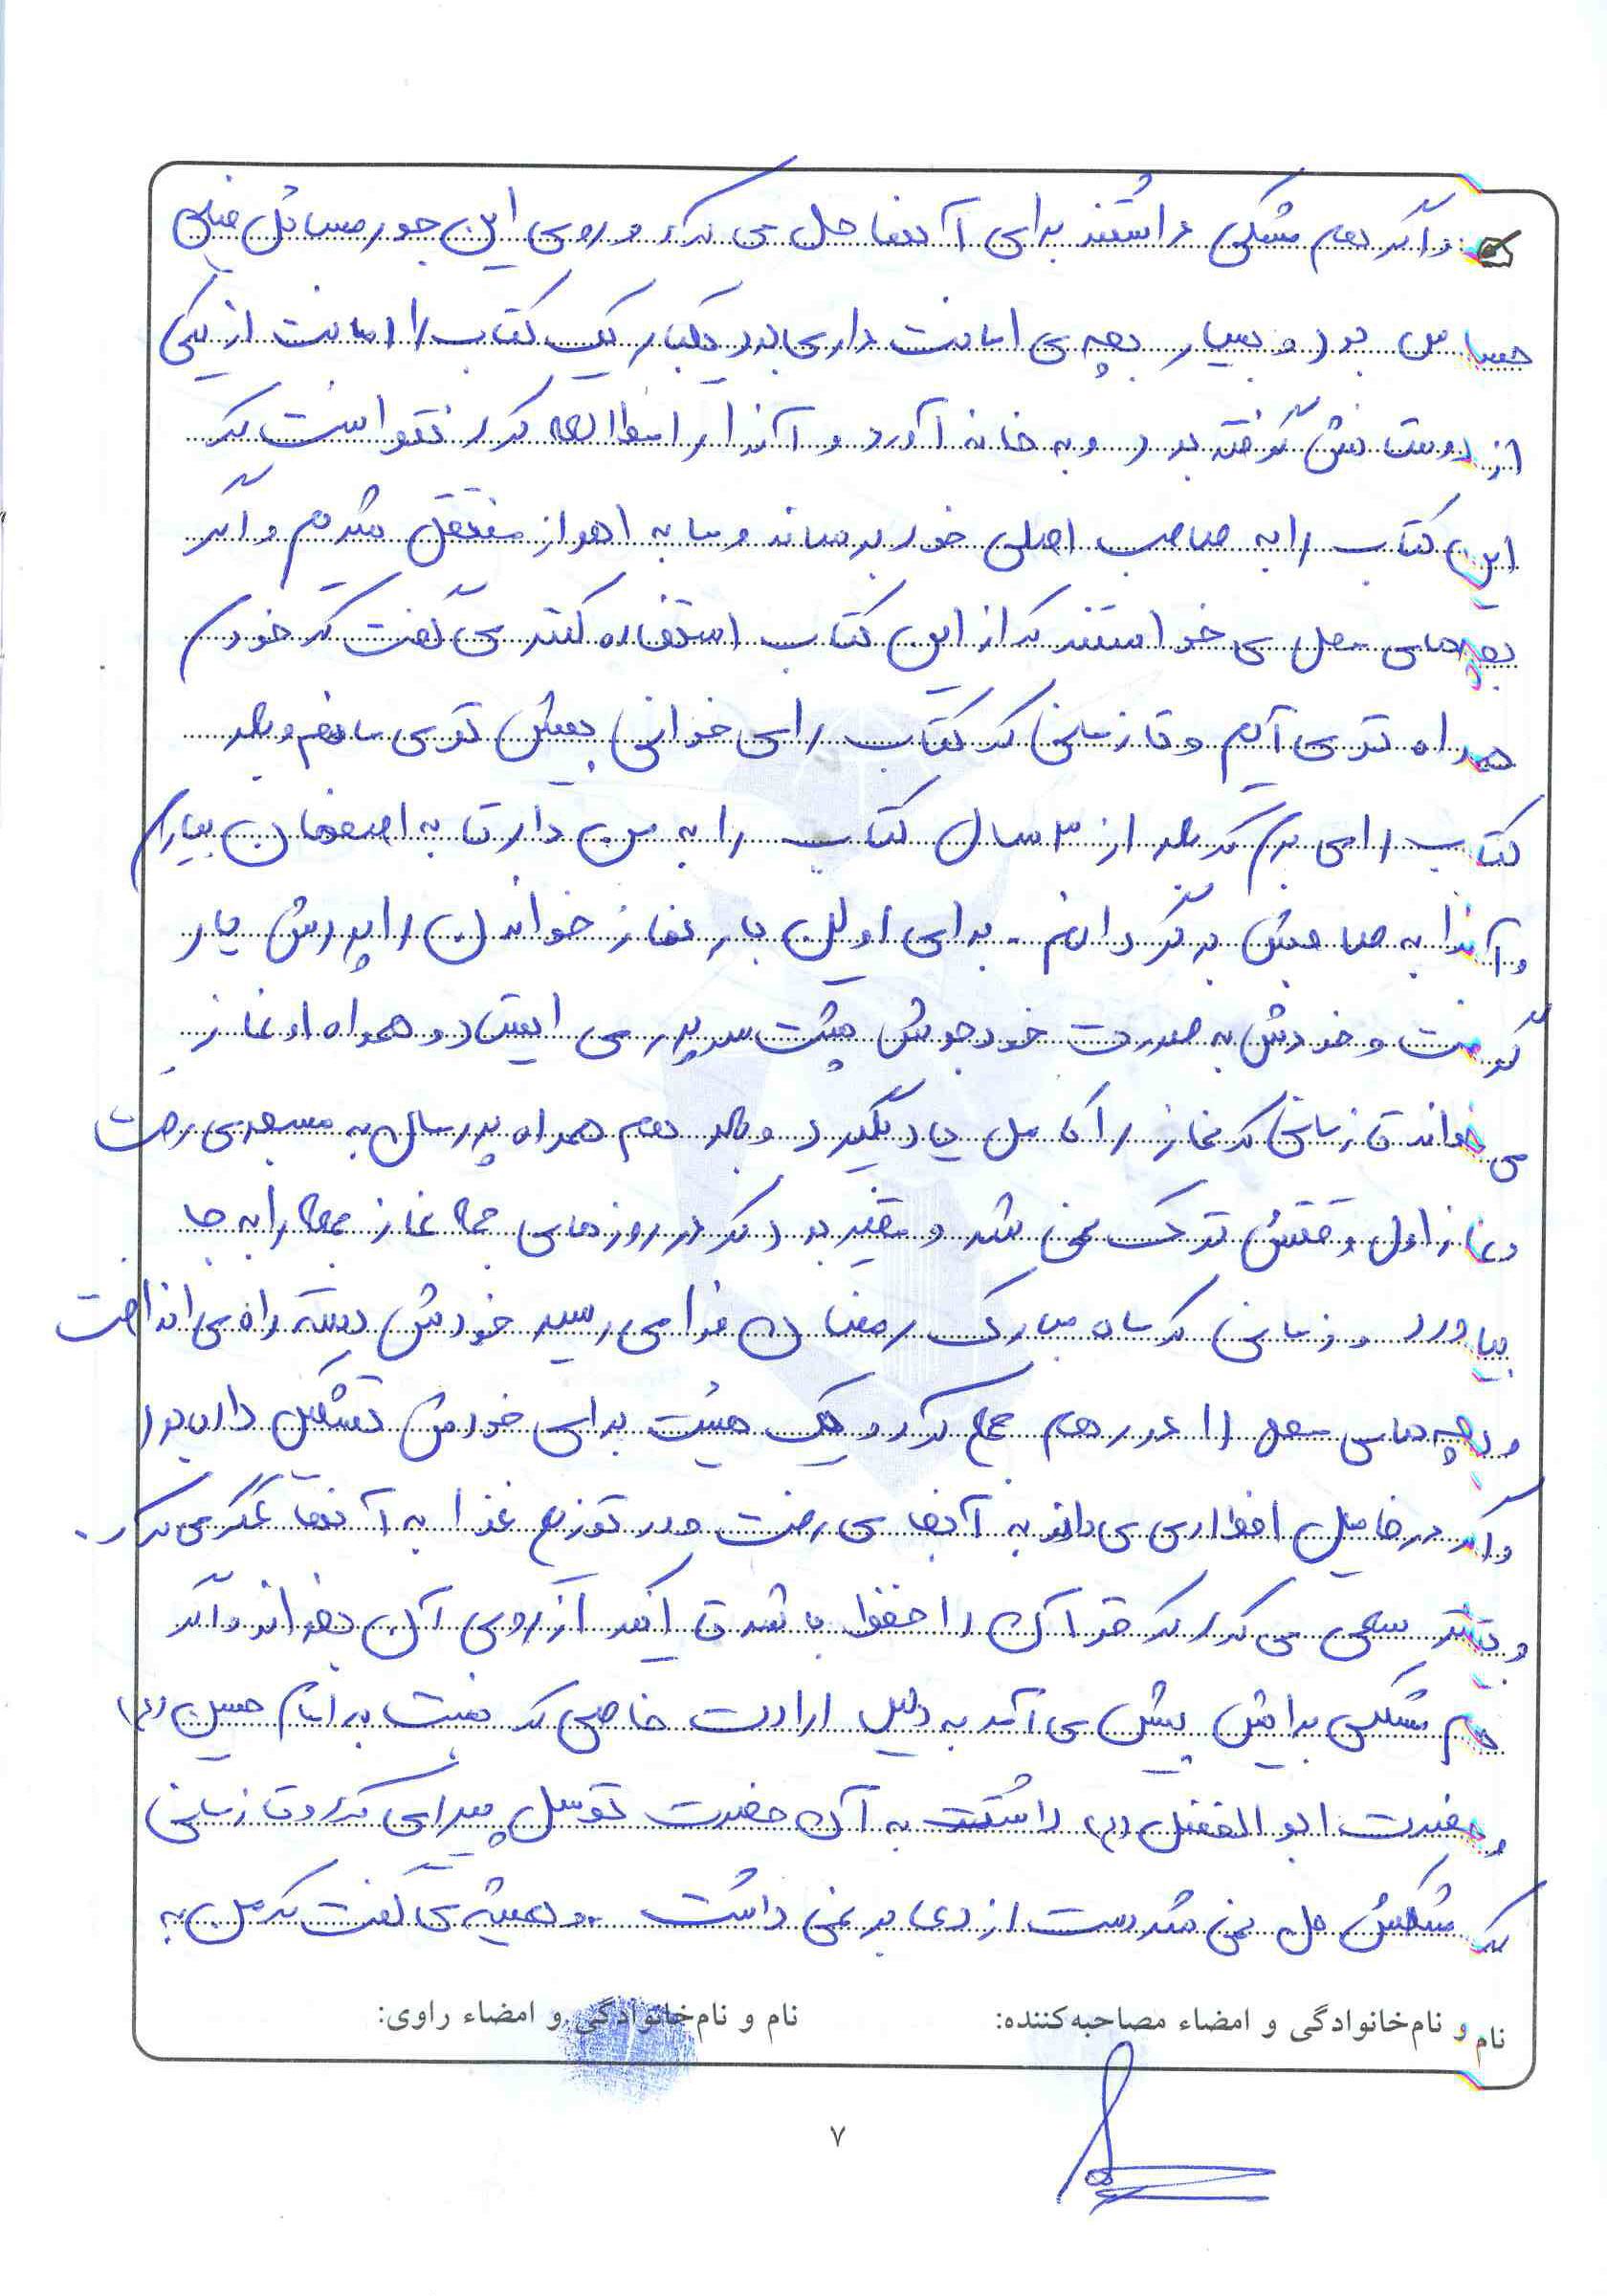 و اگر هم مشکلی داشتند برای آنها حل می کرد و روی این جور مسائل خیلی
حساس بود و بسیار بچه ی امانت داری بود یکبار یک کتاب را امانت از یکی
از دوستانش گرفته بود و به خانه آورد و آنرا مطالعه کرد نتوانست که
این کتاب را به صاحب اصلی خود برساند و ما به اهواز منتقل شدیم و اگر
بچه‌های محل می خواستند که از این کتاب استفاده کنند می گفت که خودم
همراه تو می آیم و تا زمانی که کتاب را می خوانی پیش تو می مانم و بعد
کتاب را می برم که بعد از ۳ سال کتاب را به من داد تا به اصفهان بیارم
و آنرا به صاحبش برگردانم . برای اولین بار نماز خواندن را از پدرش یاد
گرفت و خودش به صورت خودجوش پشت سر پدر می ایستاد و همراه او نماز
می خواند تا زمانی که نماز را کامل یاد بگیرد و بعد هم همراه پدرسان به مسجد می رفت
و نماز اول وقتش ترک نمی شد و مقید بود که در روزهای جمعه نماز جمعه را به جا
بیاورد و زمانی که ماه مبارک رمضان فرا می رسید خودش دسته راه می انداخت
و بچه های محل را دور هم جمع کرد و یک هیئت برای خودش تشکیل داده بود
و اگر در فامیل افطاری می دادند به آنجا می رفت و در توزیع غذا به آنها کمک می کرد .
و بیشتر سعی می کرد که قرآن را حفظ باشد تا اینکه از روی آن بخواند و اگر
هم مشکلی برایش پیش می آمد به دلیل ارادت خاصی که نسبت به امام حسین (ع)
و حضرت ابوالفضل (ع) داشت به آن حضرت توسل پیدا می کرد و تا زمانی
که مشکلش حل نمی شد دست از دعا بر نمی داشت . و همیشه می گفت که من به
نام و نام‌خانوادگی و امضاء مصاحبه‌کننده: نام و نام‌خانوادگی و امضاء راوی:
۷